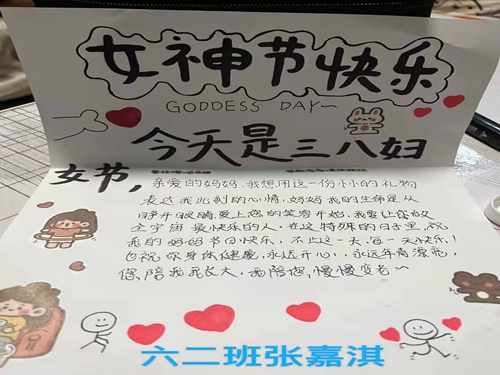 女神节快乐
GODDESS DAY~
今天是三八妇
女节,
亲爱的妈妈,我想用这一份小小的礼物
表达我此刻的心情,妈妈我的生命是从
睁开眼睛,爱上您的笑容开始,我要让您做
全宇宙最快乐的人,在这特殊的日子里,祝
我的妈妈节日快乐,不止这一天,每一天快乐!
也祝你身体健康,永远开心,永远年青漂亮,
您陪我长大,我陪您慢慢变老~
六二班张嘉淇